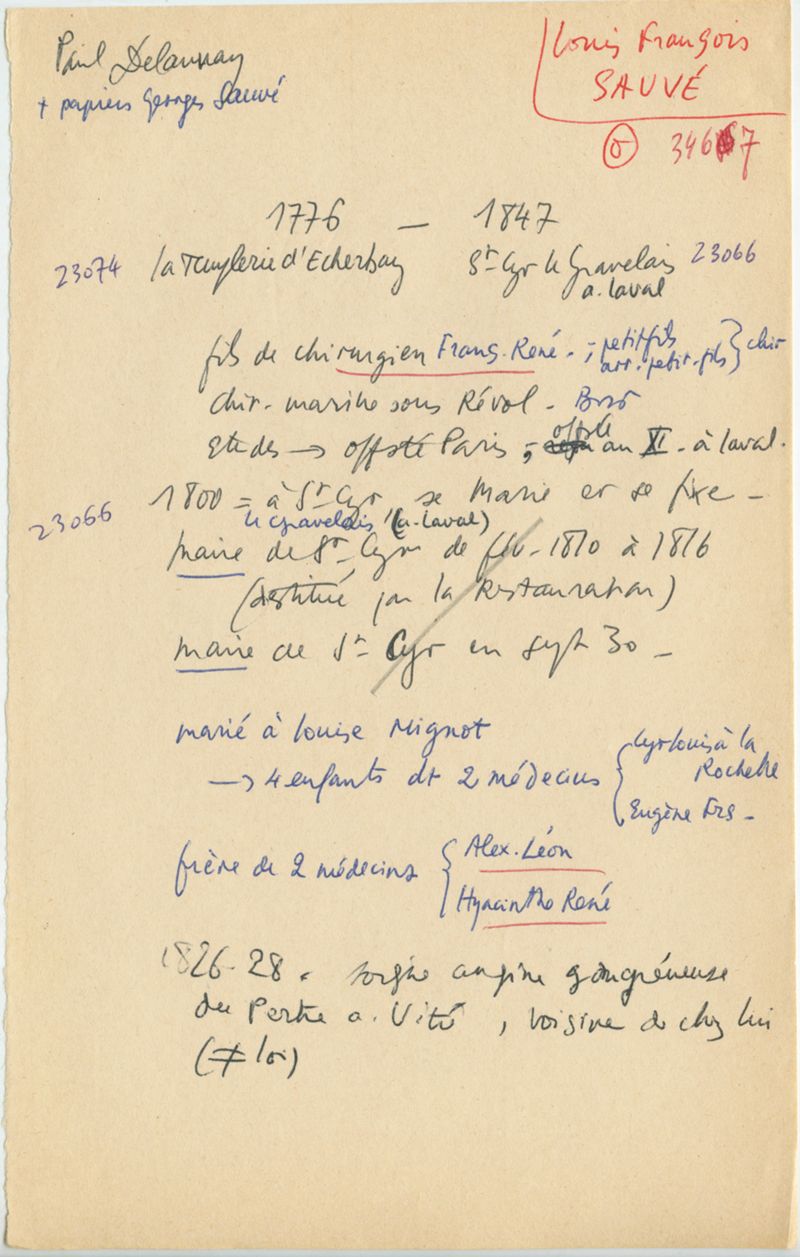 Paul Delaunay
+ papiers Georges Sauvé
Louis François
SAUVÉ
34667
1776 — 1847
23074 la Tanylerie d'Echerbay St Cyr le Gravelais 23066
a. Laval
fils de chirurgien Franç. René. - ; petit fils
arr. petit-fils } chir
chir. marine sous Révol - Brest
Etudes → offsté Paris ; offsté an XI - à Laval.
1800 = à St Cyr se marie et se fixe -
23066 le Gravelais (a. Laval)
maire de St Cyr de fév. 1810 à 1816
(destitué par la Restauration)
maire de St Cyr en sept 30 -
marié à Louise Mignot
→ 4 enfants dt 2 médecins { Cyr Louis à la
Rochelle
Eugène Frs -
frère de 2 médecins { Alex. Léon
Hyacinthe René
1826-28. soigne angine gangréneuse
du Pertre a. Vitré, voisine de chez lui
(≠ loi)